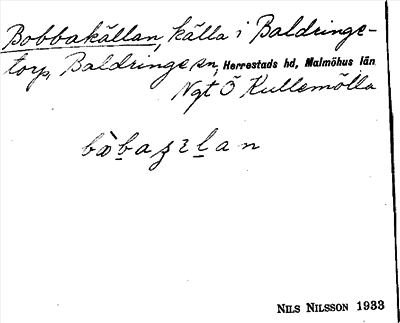 Bobbakällan, källa i Baldringe-
torp, Baldringe sn, Herrestads hd, Malmöhus län
Ngt Ö Kullemölla
NILS NILSSON 1933